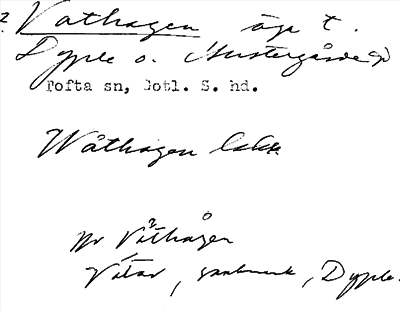 Vathagen äga t.
Dyple o. Mustergårde
Tofta sn, Gotl. S. hd.
Wåthagen
Nr Våthagen
Vätar, , Dyple.